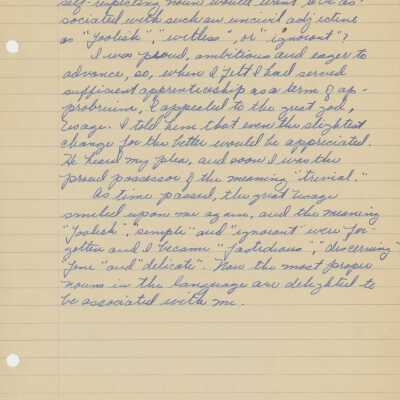 self-respecting noun would want to be as-
sociated with such an uncivil adjective
as "foolish", "witless", or "ignorant"?
I was proud, ambitious and eager to
advance, so, when I felt I had served
sufficient apprenticeship as a term of ap-
probrium, I appealed to the great god,
Usage. I told him that even the slightest
change for the better would be appreciated.
He heard my plea, and soon I was the
proud possessor of the meaning "trivial."
As time passed, the great Usage
smiled upon me again, and the meaning
"foolish", "simple" and "ignorant" were for-
gotten and I became "fastidious", "discerning"
"fine" and "delicate". Now the most proper
nouns in the language are delighted to
be associated with me.